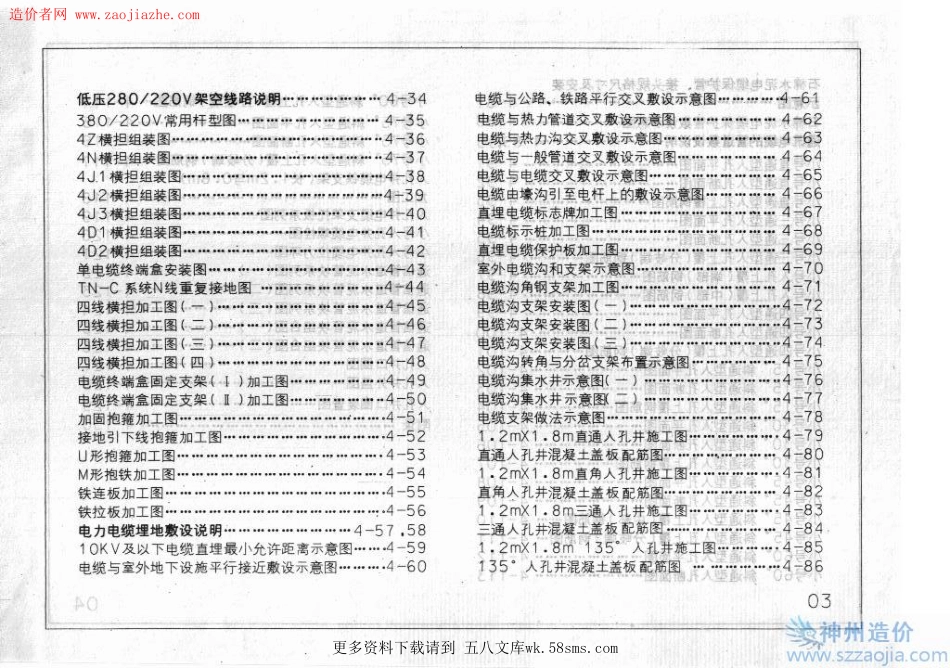 造价者网 www.zaojiazhe.com
低压280/220V架空线路说明…………4-34
380/220V常用杆型图…………4-35
4Z横担组装图…………4-36
4N横担组装图…………4-37
4J1横担组装图…………4-38
4J2横担组装图…………4-39
4J3横担组装图…………4-40
4D1横担组装图…………4-41
4D2横担组装图…………4-42
单电缆终端盒安装图…………4-43
TN-C 系统N线重复接地图…………4-44
四线横担加工图(一)…………4-45
四线横担加工图(二)…………4-46
四线横担加工图(三)…………4-47
四线横担加工图(四)…………4-48
电缆终端盒固定支架(Ⅰ)加工图…………4-49
电缆终端盒固定支架(Ⅱ)加工图…………4-50
加固抱箍加工图…………4-51
接地引下线抱箍加工图…………4-52
U形抱箍加工图…………4-53
M形抱铁加工图…………4-54
铁连板加工图…………4-55
铁拉板加工图…………4-56
电力电缆埋地敷设说明…………4-57,58
10KV及以下电缆直埋最小允许距离示意图……4-59
电缆与室外地下设施平行接近敷设示意图………4-60
电缆与公路、铁路平行交叉敷设示意图…………4-61
电缆与热力管道交叉敷设示意图…………4-62
电缆与热力沟交叉敷设示意图…………4-63
电缆与一般管道交叉敷设示意图…………4-64
电缆与电缆交叉敷设示意图…………4-65
电缆由壕沟引至电杆上的敷设示意图…………4-66
直埋电缆标志牌加工图…………4-67
电缆标示桩加工图…………4-68
直埋电缆保护板加工图…………4-69
室外电缆沟和支架示意图…………4-70
电缆沟角钢支架加工图…………4-71
电缆沟支架安装图(一)…………4-72
电缆沟支架安装图(二)…………4-73
电缆沟支架安装图(三)…………4-74
电缆沟转角与分岔支架布置示意图…………4-75
电缆沟集水井示意图(一)…………4-76
电缆沟集水井示意图(二)…………4-77
电缆支架做法示意图…………4-78
1.2mX1.8m直通人孔井施工图…………4-79
直通人孔井混凝土盖板配筋图…………4-80
1.2mX1.8m直角人孔井施工图…………4-81
直角人孔井混凝土盖板配筋图…………4-82
1.2mX1.8m三通人孔井施工图…………4-83
三通人孔井混凝土盖板配筋图…………4-84
1.2mX1.8m 135° 人孔井施工图…………4-85
135° 人孔井混凝土盖板配筋图…………4-86
03
神州造价
www.szzaojia.com
更多资料下载请到 五八文库wk.58sms.com